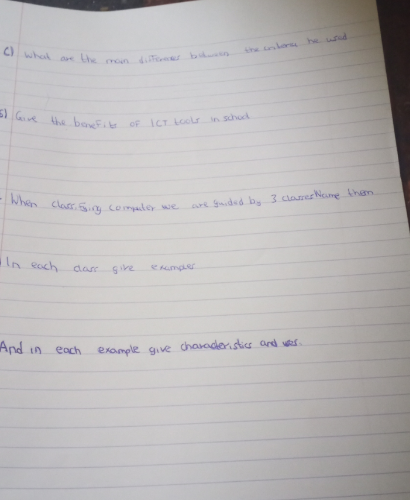 c) What are the main differences between the criteria he used
5) Give the benefits of ICT tools in school
When classifying computer we are guided by 3 classes Name them
In each class give examples
And in each example give characteristics and uses.